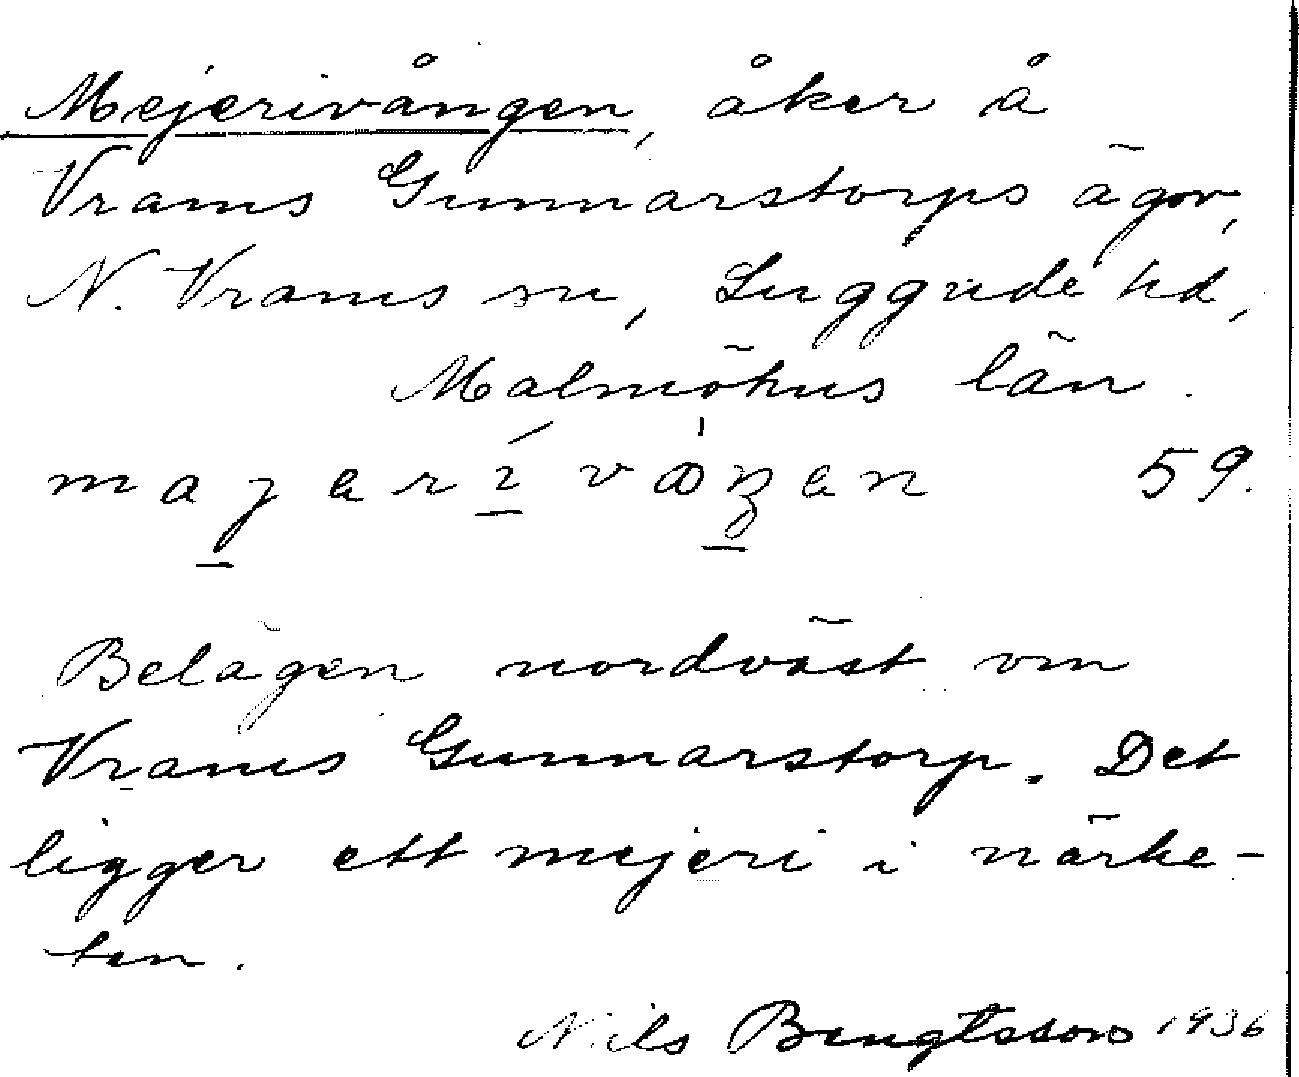 Mejerivången, åker å
Vrams Gunnarstorps ägor,
N. Vrams sn, Luggude hd,
Malmöhus län.
59.
Belägen nordväst om
Vrams Gunnarstorp. Det
ligger ett mejeri i närhe-
ten.
Nils Bengtsson 1936